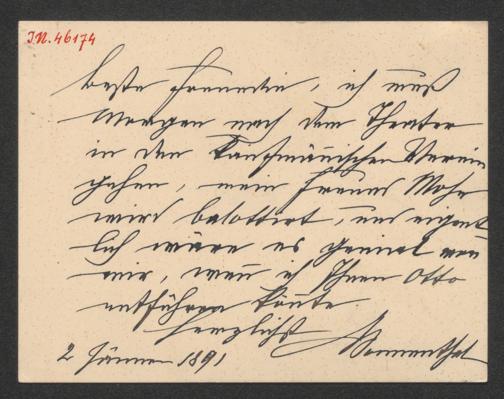 I.N. 46174
beste Freundin, ich muß
Morgen nach dem Theater
in den Kaufmännischen Verein
gehen, mein Freund Mohr
wird balottirt, und eigent
lich wäre es genial von
mir, wenn ich Ihnen Otto
entführen könnte
herzlichst
2 Jänner 1891 Sonnenthal